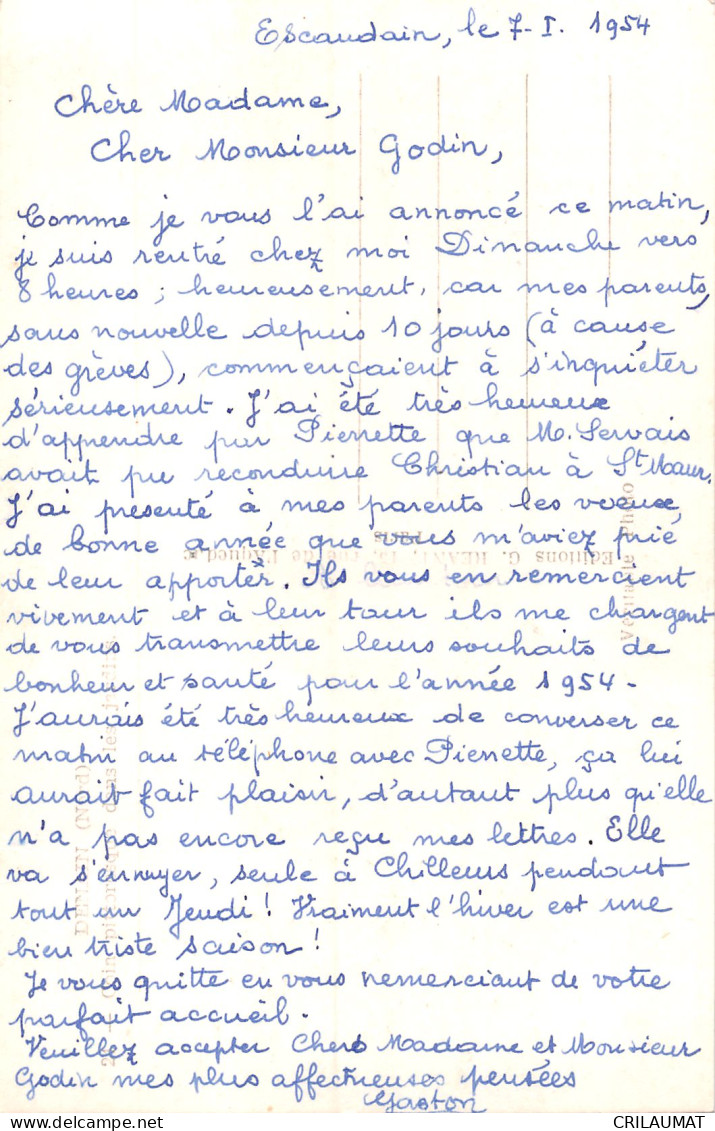 Escaudain, le 7-I. 1954
Chère Madame,
Cher Monsieur Godin,
Comme je vous l'ai annoncé ce matin,
je suis rentré chez moi Dimanche vers
8 heures ; heureusement, car mes parents,
sans nouvelle depuis 10 jours (à cause
des grèves), commençaient à s'inquiéter
sérieusement. J'ai été très heureux
d'apprendre par Pierrette que M. Servais
avait pu reconduire Christian à St Maur.
J'ai présenté à mes parents les voeux
de bonne année que vous m'aviez prié
de leur apporter. Ils vous en remercient
vivement et à leur tour ils me chargent
de vous transmettre leurs souhaits de
bonheur et santé pour l'année 1954-
J'aurais été très heureux de converser ce
matin au téléphone avec Pierrette, ça lui
aurait fait plaisir, d'autant plus qu'elle
n'a pas encore reçu mes lettres. Elle
va s'ennuyer, seule à Chilleurs pendant
tout un Jeudi ! Vraiment l'hiver est une
bien triste saison !
Je vous quitte en vous remerciant de votre
parfait accueil.
Veuillez accepter Chers Madame et Monsieur
Godin mes plus affectueuses pensées
Gaston
Editions G. REANT, 12, rue de l'Aqueduc
Paris
Véritable Photo
DENAIN (Nord)
CRILAUMAT